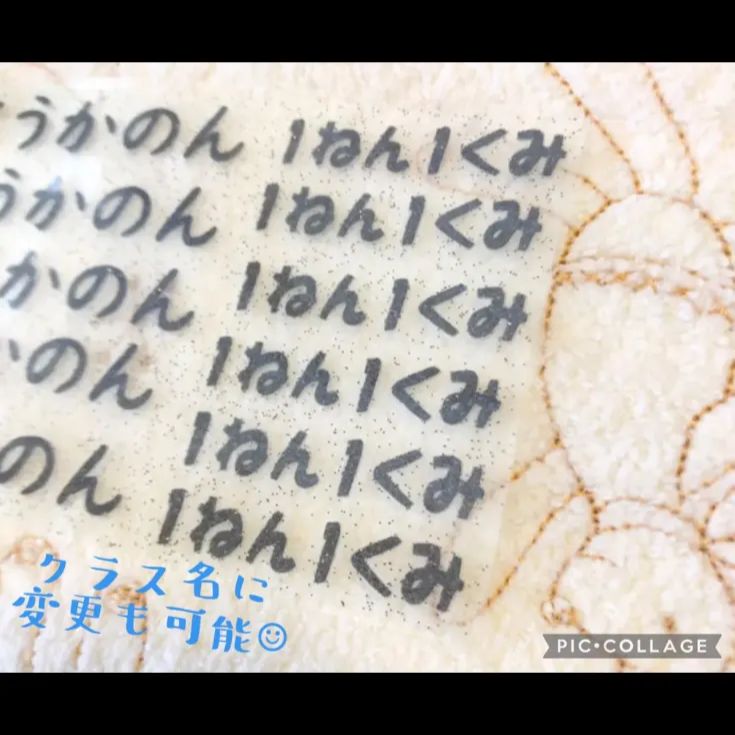 うかのん 1ねん1くみ
うかのん 1ねん1くみ
かのん 1ねん1くみ
のん 1ねん1くみ
1ねん1くみ
のん 1ねん1くみ
クラス名に
変更も可能☺
PIC•COLLAGE